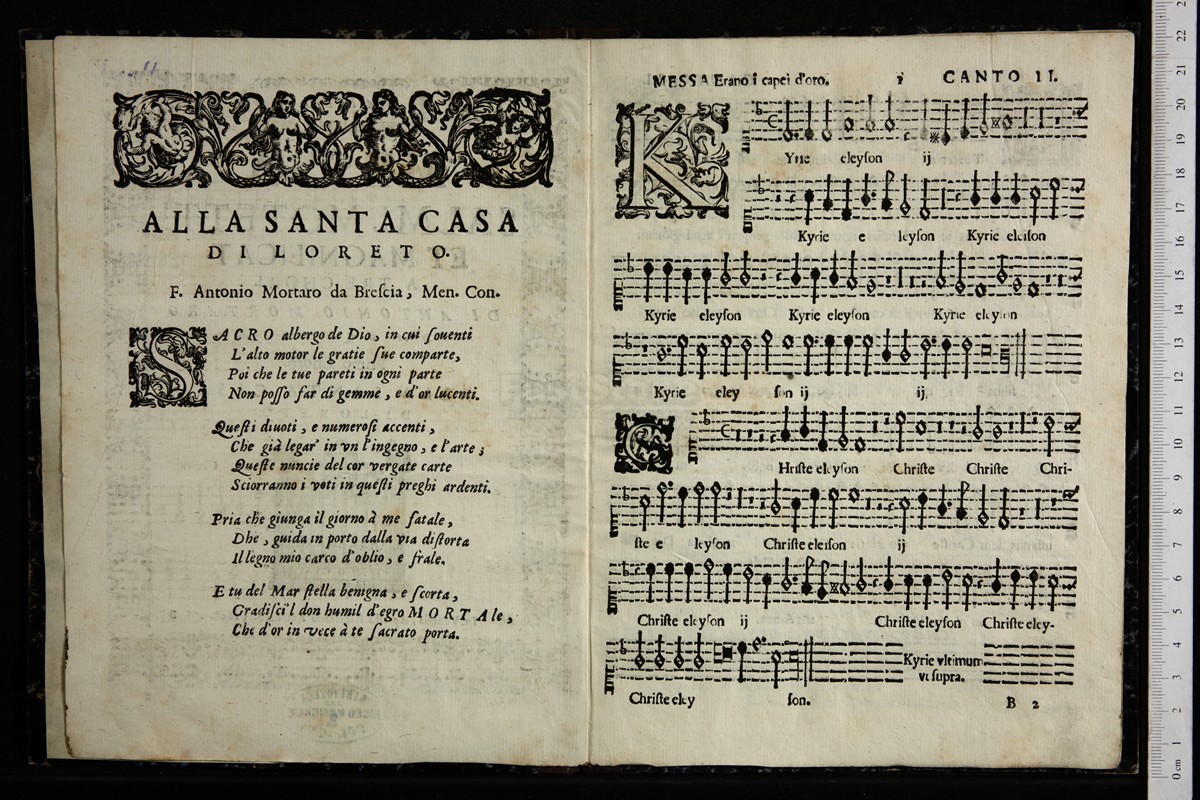 ALLA SANTA CASA
DI LORETO.
F. Antonio Mortaro da Breſcia, Men. Con.
SACRO albergo de Dio, in cui ſouenti
L'alto motor le gratie ſue comparte,
Poi che le tue pareti in ogni parte
Non poſſo far di gemme, e d'or lucenti.
Queſti diuoti, e numeroſi accenti,
Che già legar' in vn l'ingegno, e l'arte;
Queſte nuncie del cor vergate carte
Sciorranno i voti in queſti preghi ardenti.
Pria che giunga il giorno à me fatale,
Dhe, guida in porto dalla via diſtorta
Il legno mio carco d'oblio, e frale.
E tu del Mar ſtella benigna, e ſcorta,
Gradiſci'l don humil d'egro MORTAle,
Che d'or in vece à te ſacrato porta.
MESSA Erano i capei d'oro. CANTO II.
KYrie eleyſon ij
Kyrie e leyſon Kyrie eleiſon
Kyrie eleyſon Kyrie eleyſon Kyrie eleyſon
Kyrie eley ſon ij ij.
CHriſte eleyſon Chriſte Chriſte Chri-
ſte e leyſon Chriſte eleiſon ij
Chriſte eleyſon ij Chriſte eleyſon Chriſte eley-
Kyrie vltimum
vt ſupra.
Chriſte eley ſon.
B 2
0 cm 1 2 3 4 5 6 7 8 9 10 11 12 13 14 15 16 17 18 19 20 21 22